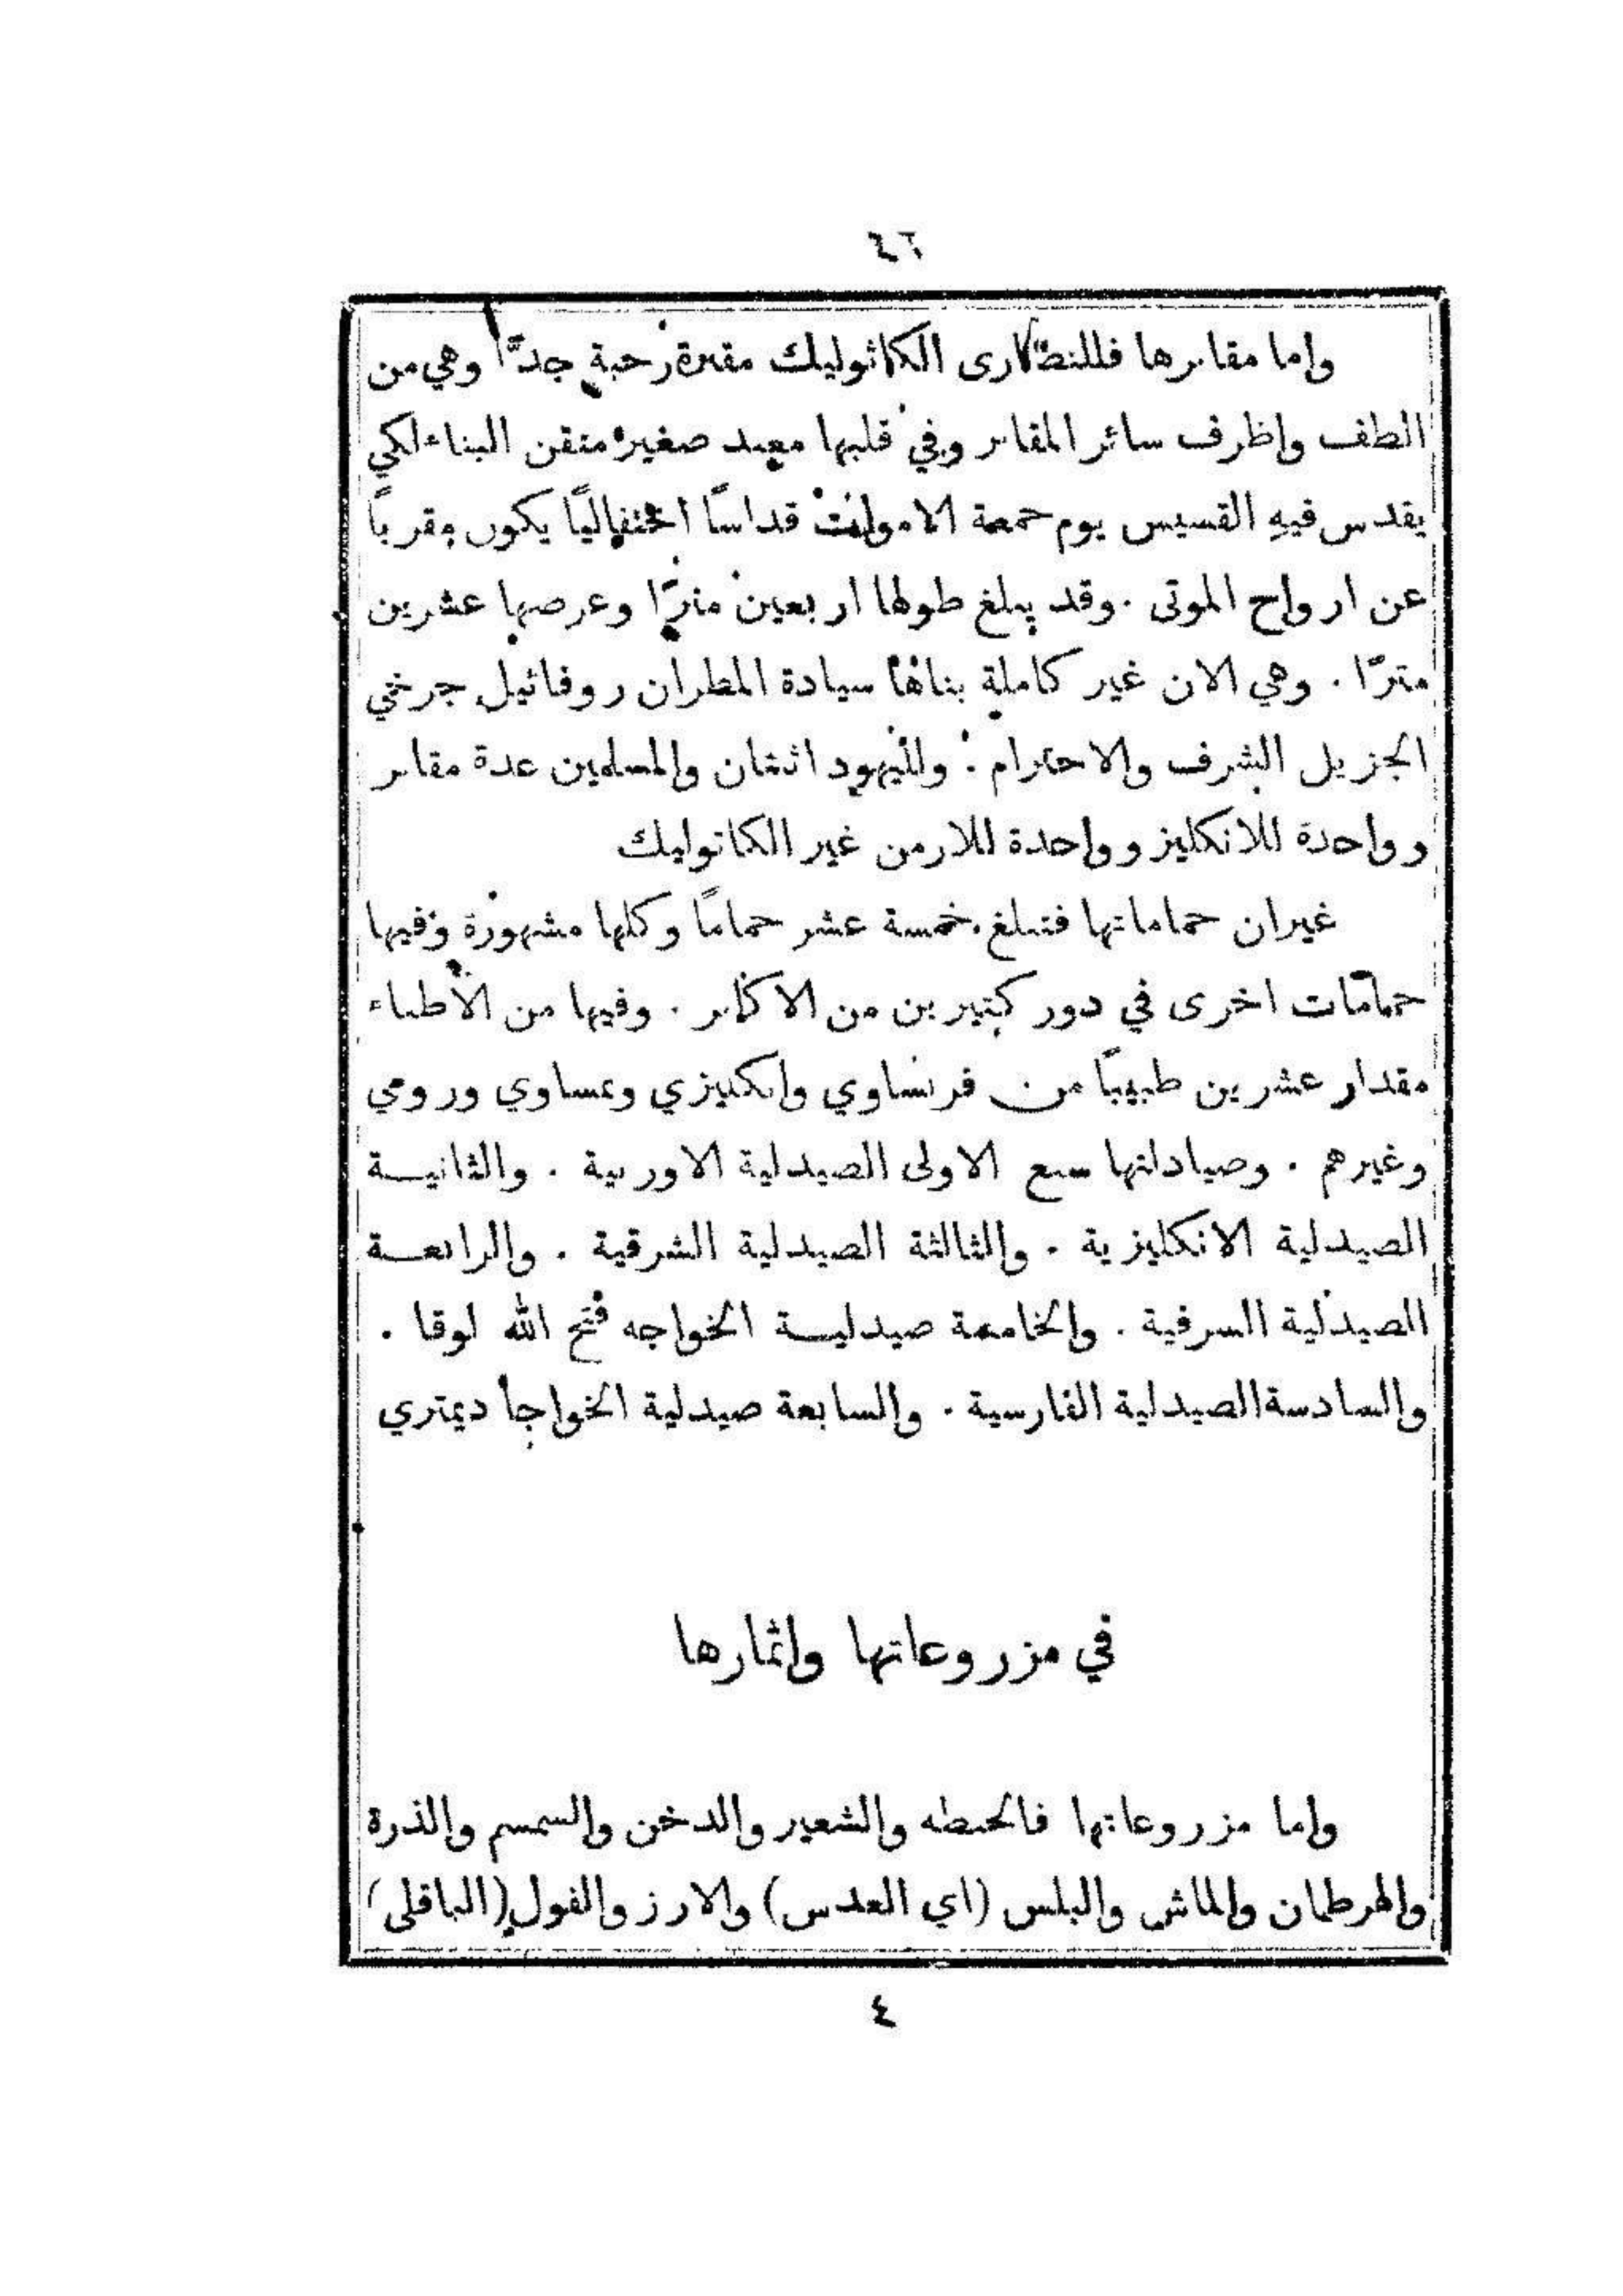 ٤٦
واما مقابرها فللنصارى الكاثوليك مقبرة رحبة جدًّا وهي من
الطف واظرف سائر المقابر وفي قلبها معبد صغير متقن البناء لكي
يقدس فيهِ القسيس يوم جمعة الاموات قداسًا احتفاليًا يكون مقربًا
عن ارواح الموتى . وقد يبلغ طولها اربعين مترًا وعرضها عشرين
مترًا . وهي الان غير كاملة بناها سيادة المطران روفائيل جرخي
الجزيل الشرف والاحترام . ولليهود اثنتان وللمسلمين عدة مقابر
وواحدة للانكليز وواحدة للارمن غير الكاثوليك
غيران حماماتها فتبلغ خمسة عشر حمامًا وكلها مشهورة وفيها
حمامات اخرى في دور كثيرين من الاكابر . وفيها من الأطباء
مقدار عشرين طبيبًا من فرنساوي وانكليزي ونمساوي ورومي
وغيرهم . وصيادلتها سبع الاولى الصيدلية الاوربية . والثانيــة
الصيدلية الانكليزية . والثالثة الصيدلية الشرقية . والرابعــة
الصيدلية الشرفية . والخامسة صيدليــة الخواجه فتح الله لوقا .
والسادسة الصيدلية الفارسية . والسابعة صيدلية الخواجا ديمتري
في مزروعاتها واثمارها
واما مزروعاتها فالحنطه والشعير والدخن والسمسم والذرة
والهرطمان والماش والبلس (اي العدس) والارز والفول (الباقلى)
٤